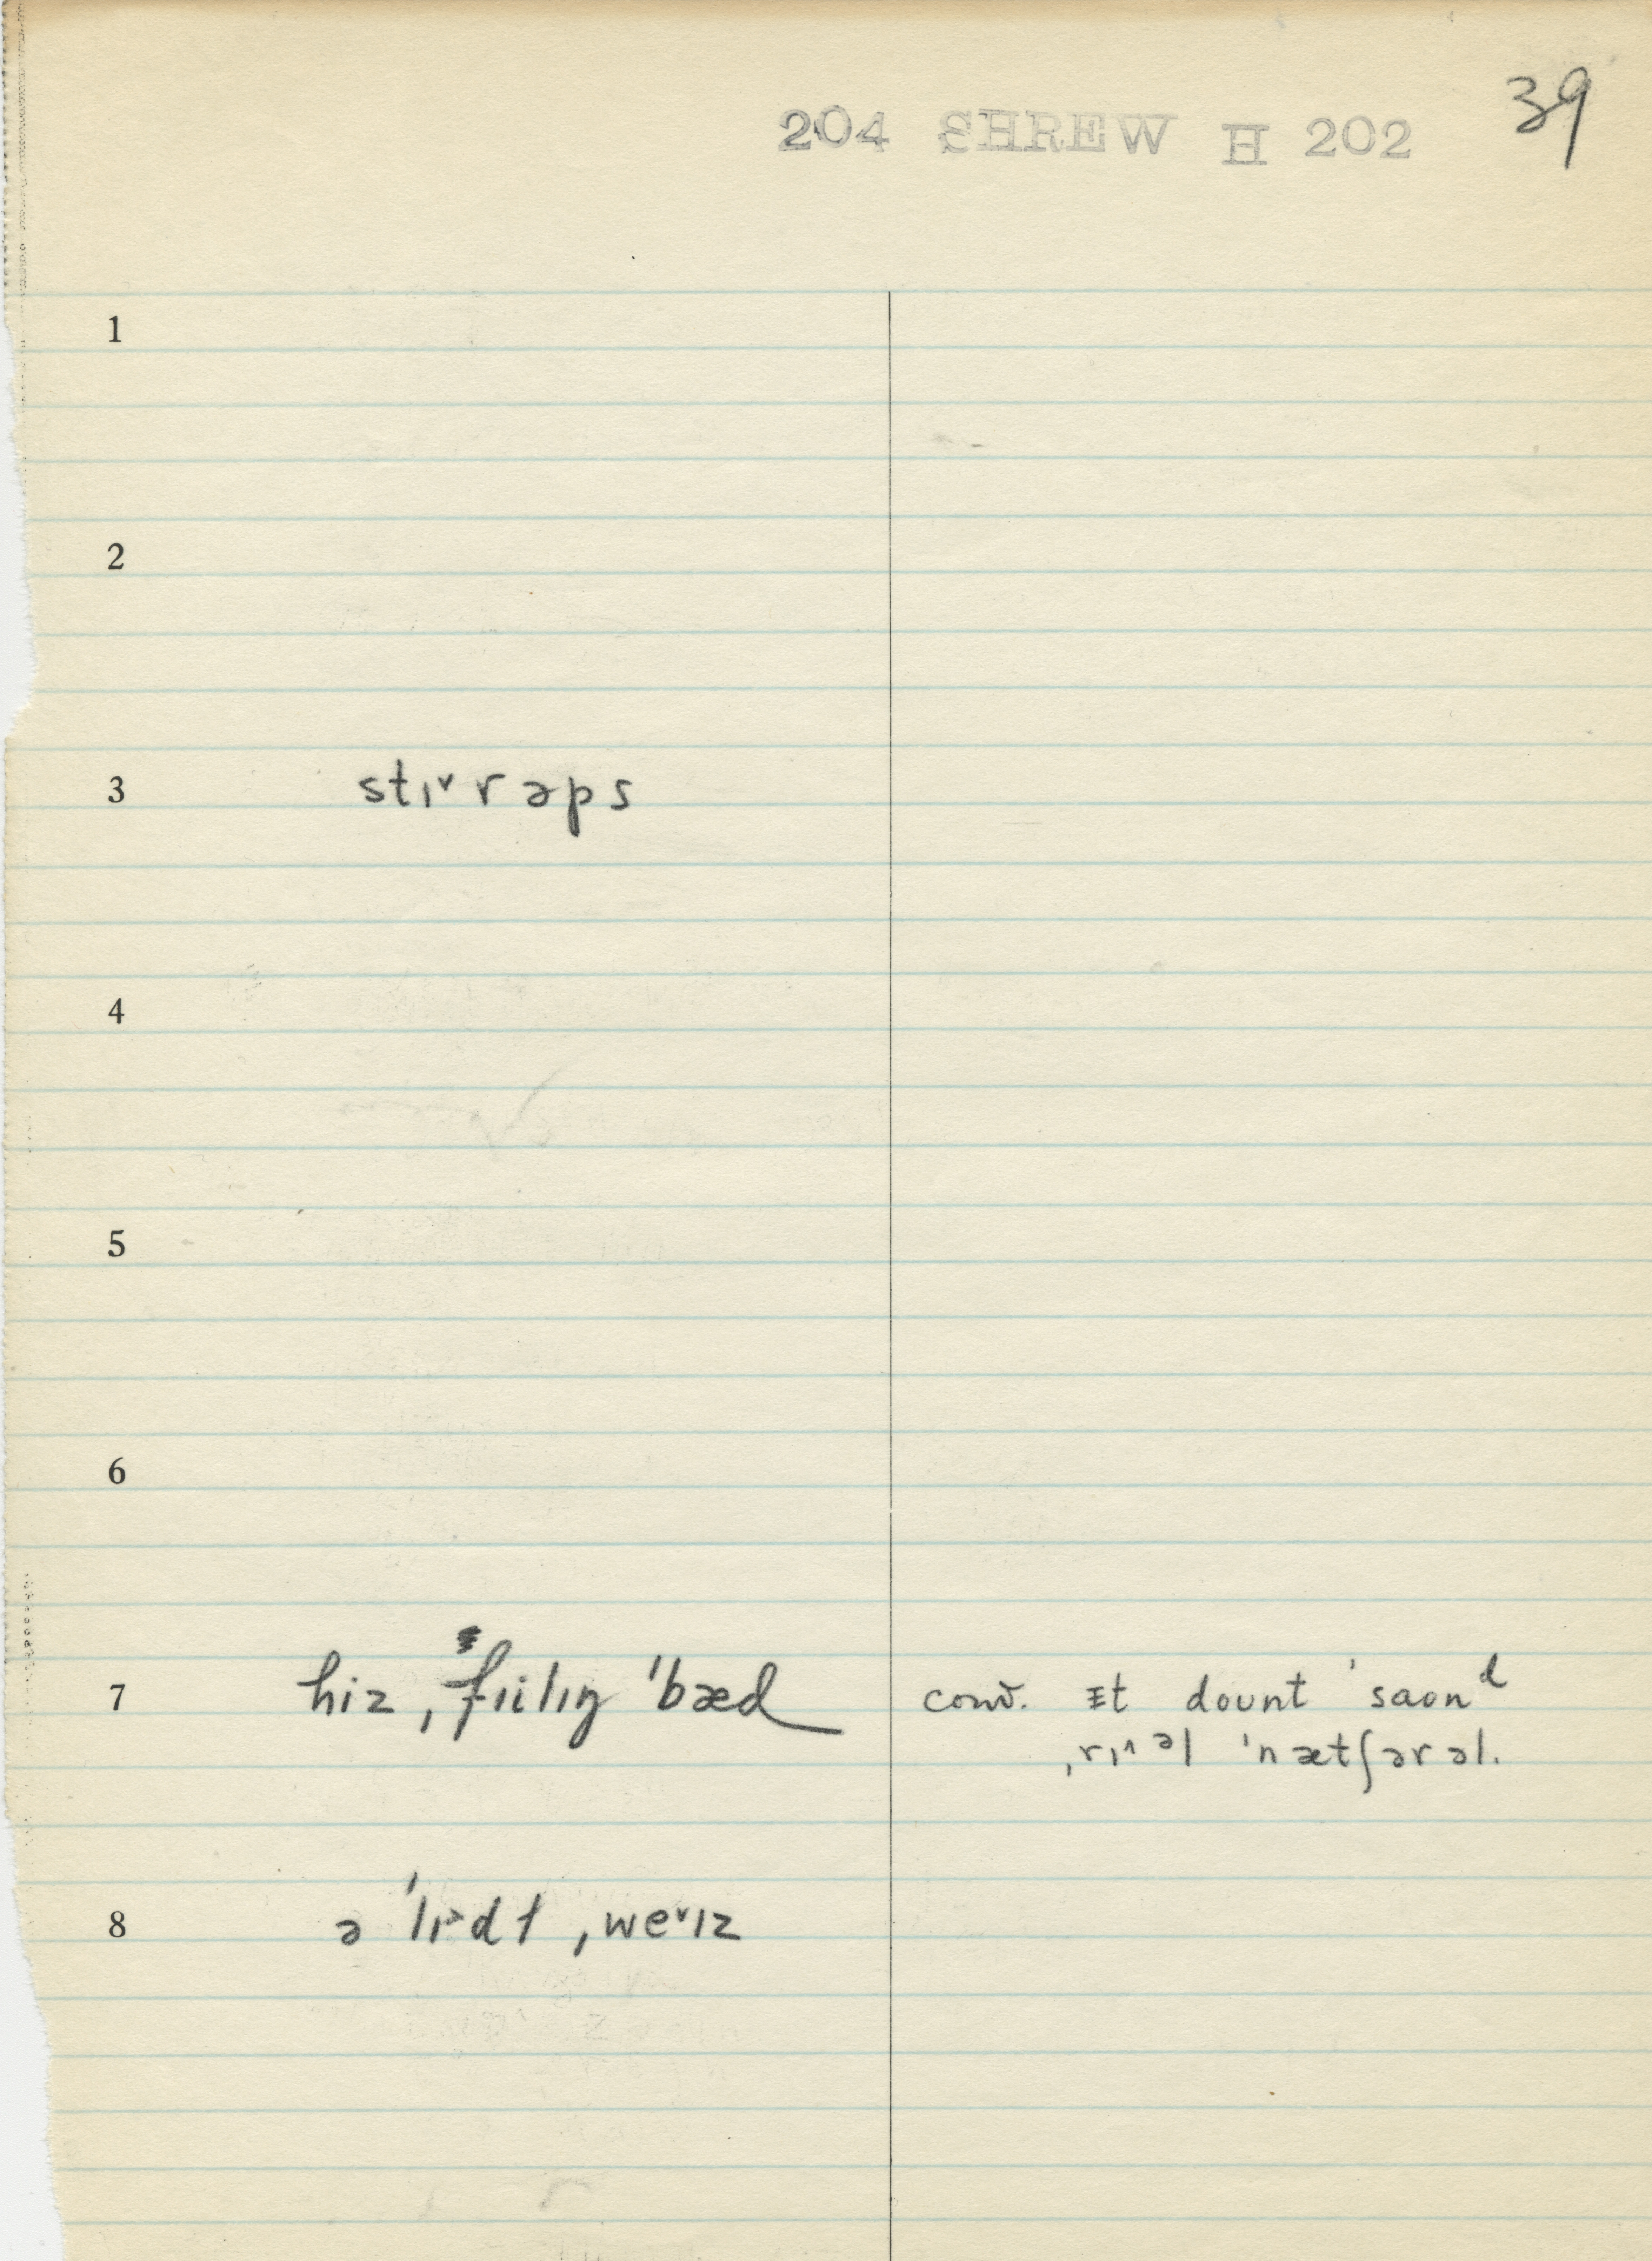 204 SHREW H 202 39
1
2
3 stɪ˅rəps
4
5
6
7 hiz ˌfɪilɪŋ ˈbæd
conv. ɪt doʊnt ˈsaond
ˌrɪ^əl ˈnætʃərəl.
8 ə ˈlɪ>dɫ ˌwe˅ɪz